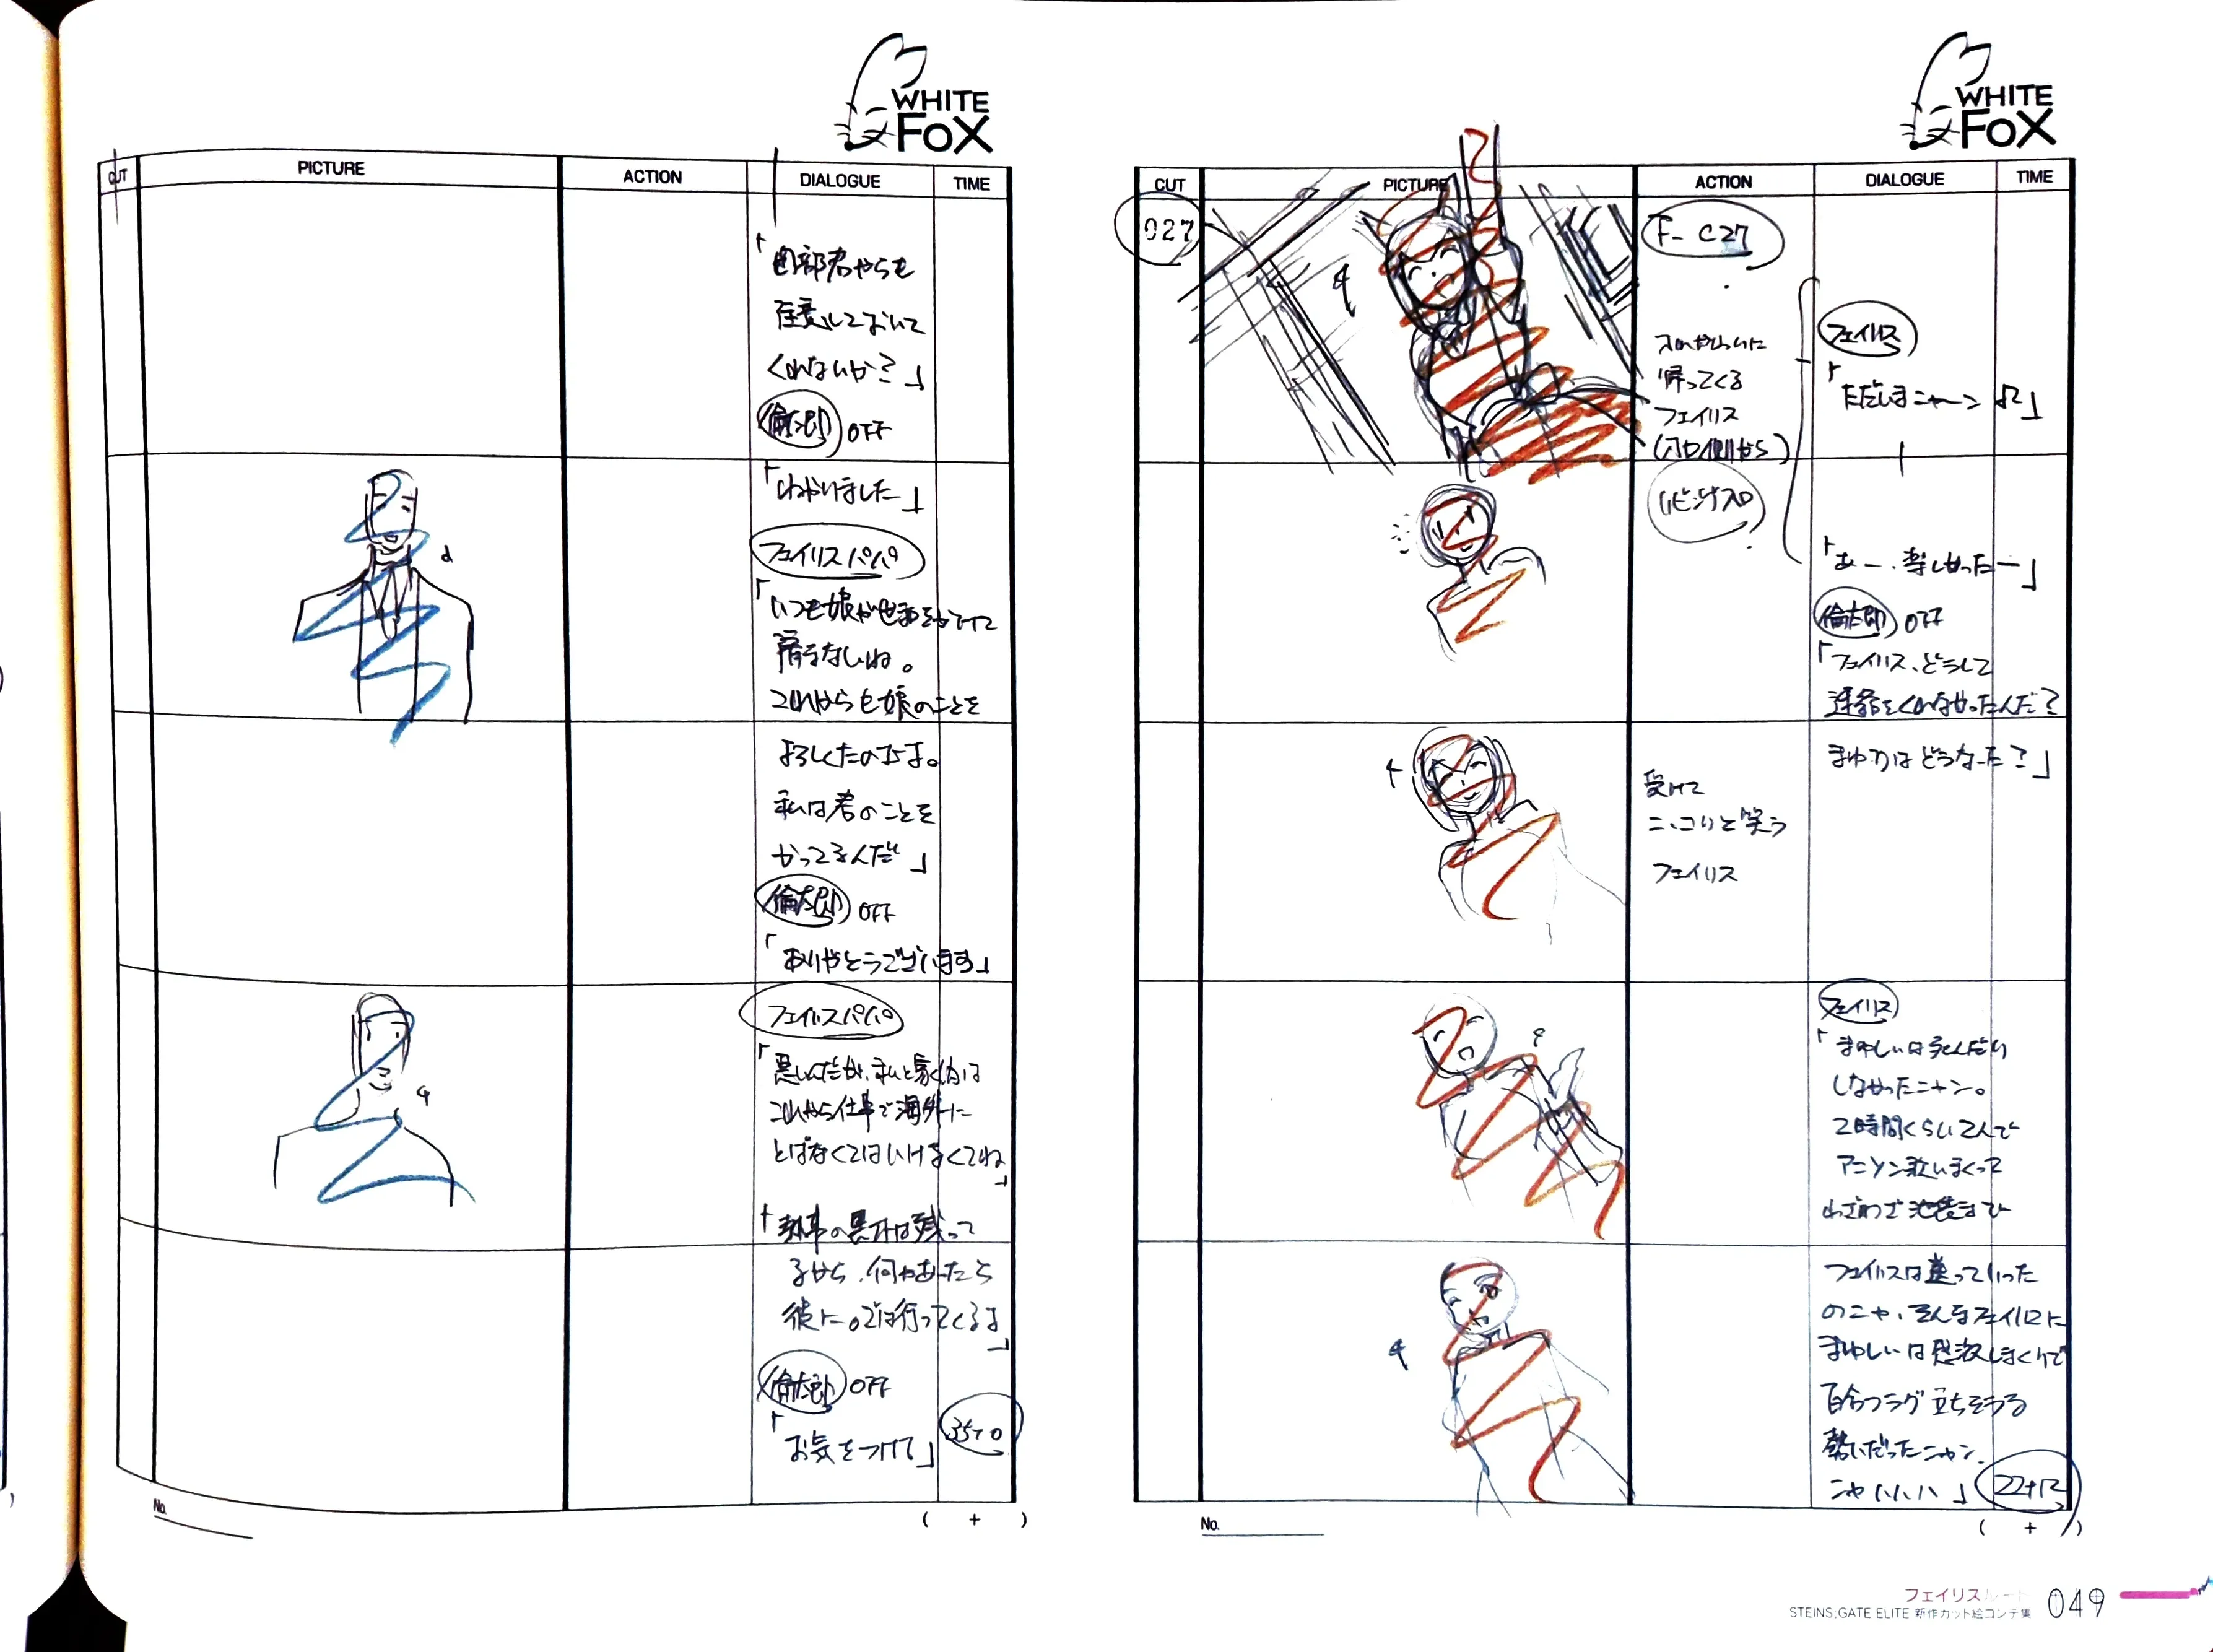 WHITE
FOX
CUT
PICTURE
ACTION
DIALOGUE
TIME
「岡部君からも
注意しておいて
くれないか?」
倫太郎 OFF
「わかりました」
フェイリスパパ
「いつも娘が世話をかけて
済まないね。
これからも娘のことを
よろしくたのむよ。
私は君のことを
かってるんだ」
倫太郎 OFF
「ありがとうございます」
フェイリスパパ
「悪いんだが、私と家内は
これから仕事で海外に
とばなくてはいけなくてね」
「執事の黒木は残って
るから、何かあったら
彼に。では行ってくるよ」
倫太郎 OFF
「お気をつけて」
35+0
No.
( + )
WHITE
FOX
CUT
PICTURE
ACTION
DIALOGUE
TIME
027
F- C27
帰ってくる
フェイリス
(入口側から)
リビング入口
フェイリス
「ただいまニャーン♫」
「あー、楽しかったー」
倫太郎 OFF
「フェイリス、どうして
連絡をくれなかったんだ?
まゆりはどうなった?」
受けて
ニッコリと笑う
フェイリス
フェイリス
「まゆしぃは死んだり
しなかったニャン。
2時間くらい2人で
アニソン歌いまくって
わざわざ池袋まで
フェイリスは送っていった
のニャ、そんなフェイリスに
まゆしぃは感激しまくりで
百合フラグ立ちそうな
勢いだったニャン、
ニャハハハ」
22+12
No.
( + )
フェイリスルート
STEINS;GATE ELITE 新作カット絵コンテ集
049